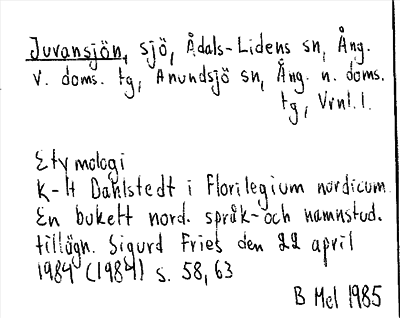 Juvansjön, sjö, Ådals-Lidens sn, Ång.
v. doms. tg, Anundsjö sn, Ång. n. doms.
tg, Vrnl. l.
Etymologi
K-H Dahlstedt i Florilegium nordicum.
En bukett nord. språk- och namnstud.
tillägn. Sigurd Fries den 22 april
1984 (1984) s. 58, 63
B Mel 1985